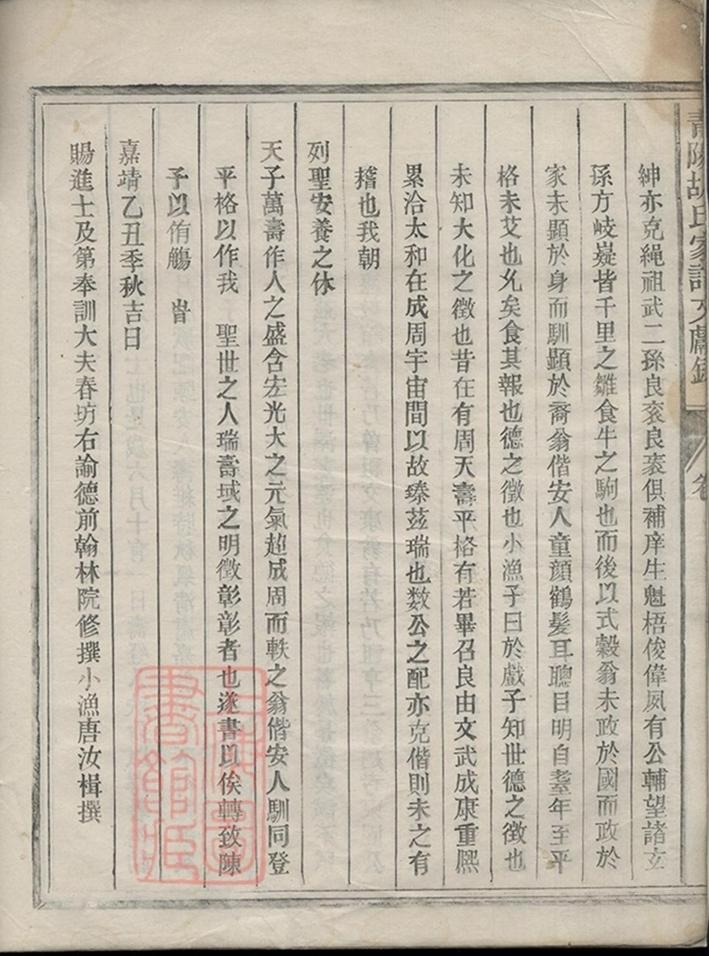 青陽胡氏家訓文獻錄
卷
紳亦克繩祖武二孫良衮良衺俱補庠生魁梧俊偉夙有公輔望諸玄
孫方岐嶷皆千里之雛食牛之駒也而後以式穀翁未政於國而政於
家未顯於身而馴顯於裔翁偕安人童顏鶴髮耳聰目明自耋年至平
格未艾也允矣食其報也德之徵也小漁子曰於戲子知世德之徵也
未知大化之徵也昔在有周天壽平格有若畢召良由文武成康重熙
累洽太和在成周宇宙間以故臻茲瑞也数公之配亦克偕則未之有
稽也我朝
列聖安養之休
天子萬壽作人之盛含宏光大之元氣超成周而軼之翁偕安人馴同登
平格以作我　聖世之人瑞壽域之明徵彰彰者也遂書以俟轉致陳
予以侑觴　旹
嘉靖乙丑季秋吉日
賜進士及第奉訓大夫春坊右諭德前翰林院修撰小漁唐汝楫撰